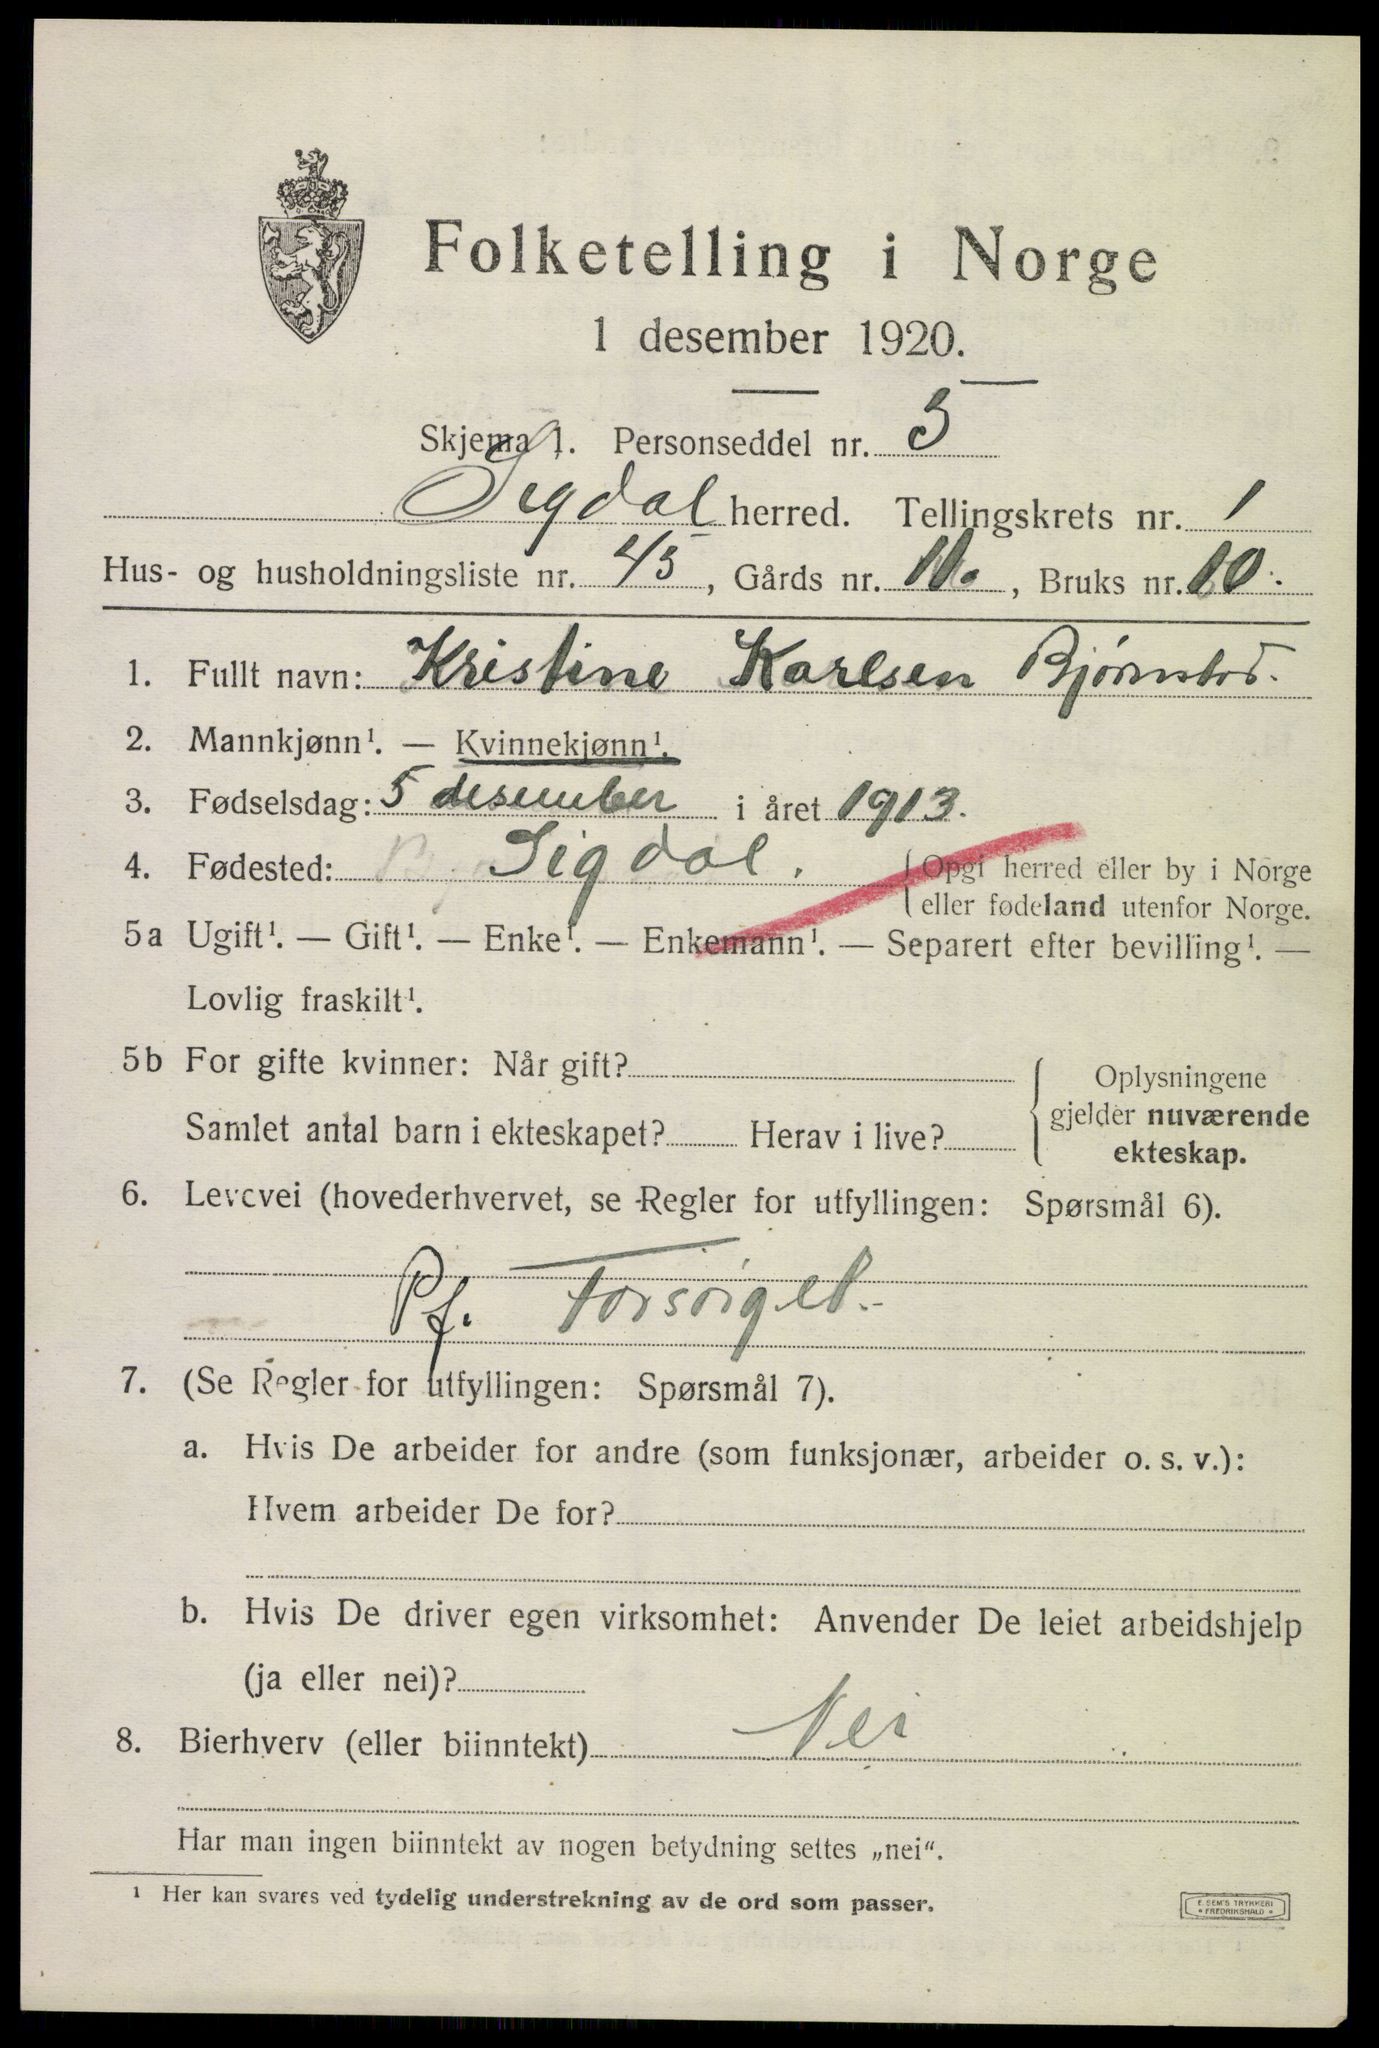 Folketelling i Norge
1 desember 1920.
Skjema 1. Personseddel nr. 5
Sigdal herred. Tellingskrets nr. 1
Hus- og husholdningsliste nr. 45, Gårds nr. 11., Bruks nr. 10.
1. Fullt navn: Kristine Karlsen
2. Mannkjønn¹. — Kvinnekjønn¹.
3. Fødselsdag: 5 desember i året 1913.
4. Fødested: Sigdal. Opgi herred eller by i Norge
eller fødeland utenfor Norge.
5a Ugift¹. — Gift¹. — Enke¹. — Enkemann¹. — Separert efter bevilling¹. —
Lovlig fraskilt¹.
5b For gifte kvinner: Når gift?
Samlet antal barn i ekteskapet? Herav i live?
Oplysningene
gjelder nuværende
ekteskap.
6. Levevei (hovederhvervet, se Regler for utfyllingen: Spørsmål 6).
Pf. Forsørget.
7. (Se Regler for utfyllingen: Spørsmål 7).
a. Hvis De arbeider for andre (som funksjonær, arbeider o. s. v.):
Hvem arbeider De for?
b. Hvis De driver egen virksomhet: Anvender De leiet arbeidshjelp
(ja eller nei)?
8. Bierhverv (eller biinntekt) Nei
Har man ingen biinntekt av nogen betydning settes „nei“.
¹ Her kan svares ved tydelig understrekning av de ord som passer.
E. SEM'S TRYKKERI
• FREDRIKSHALD •